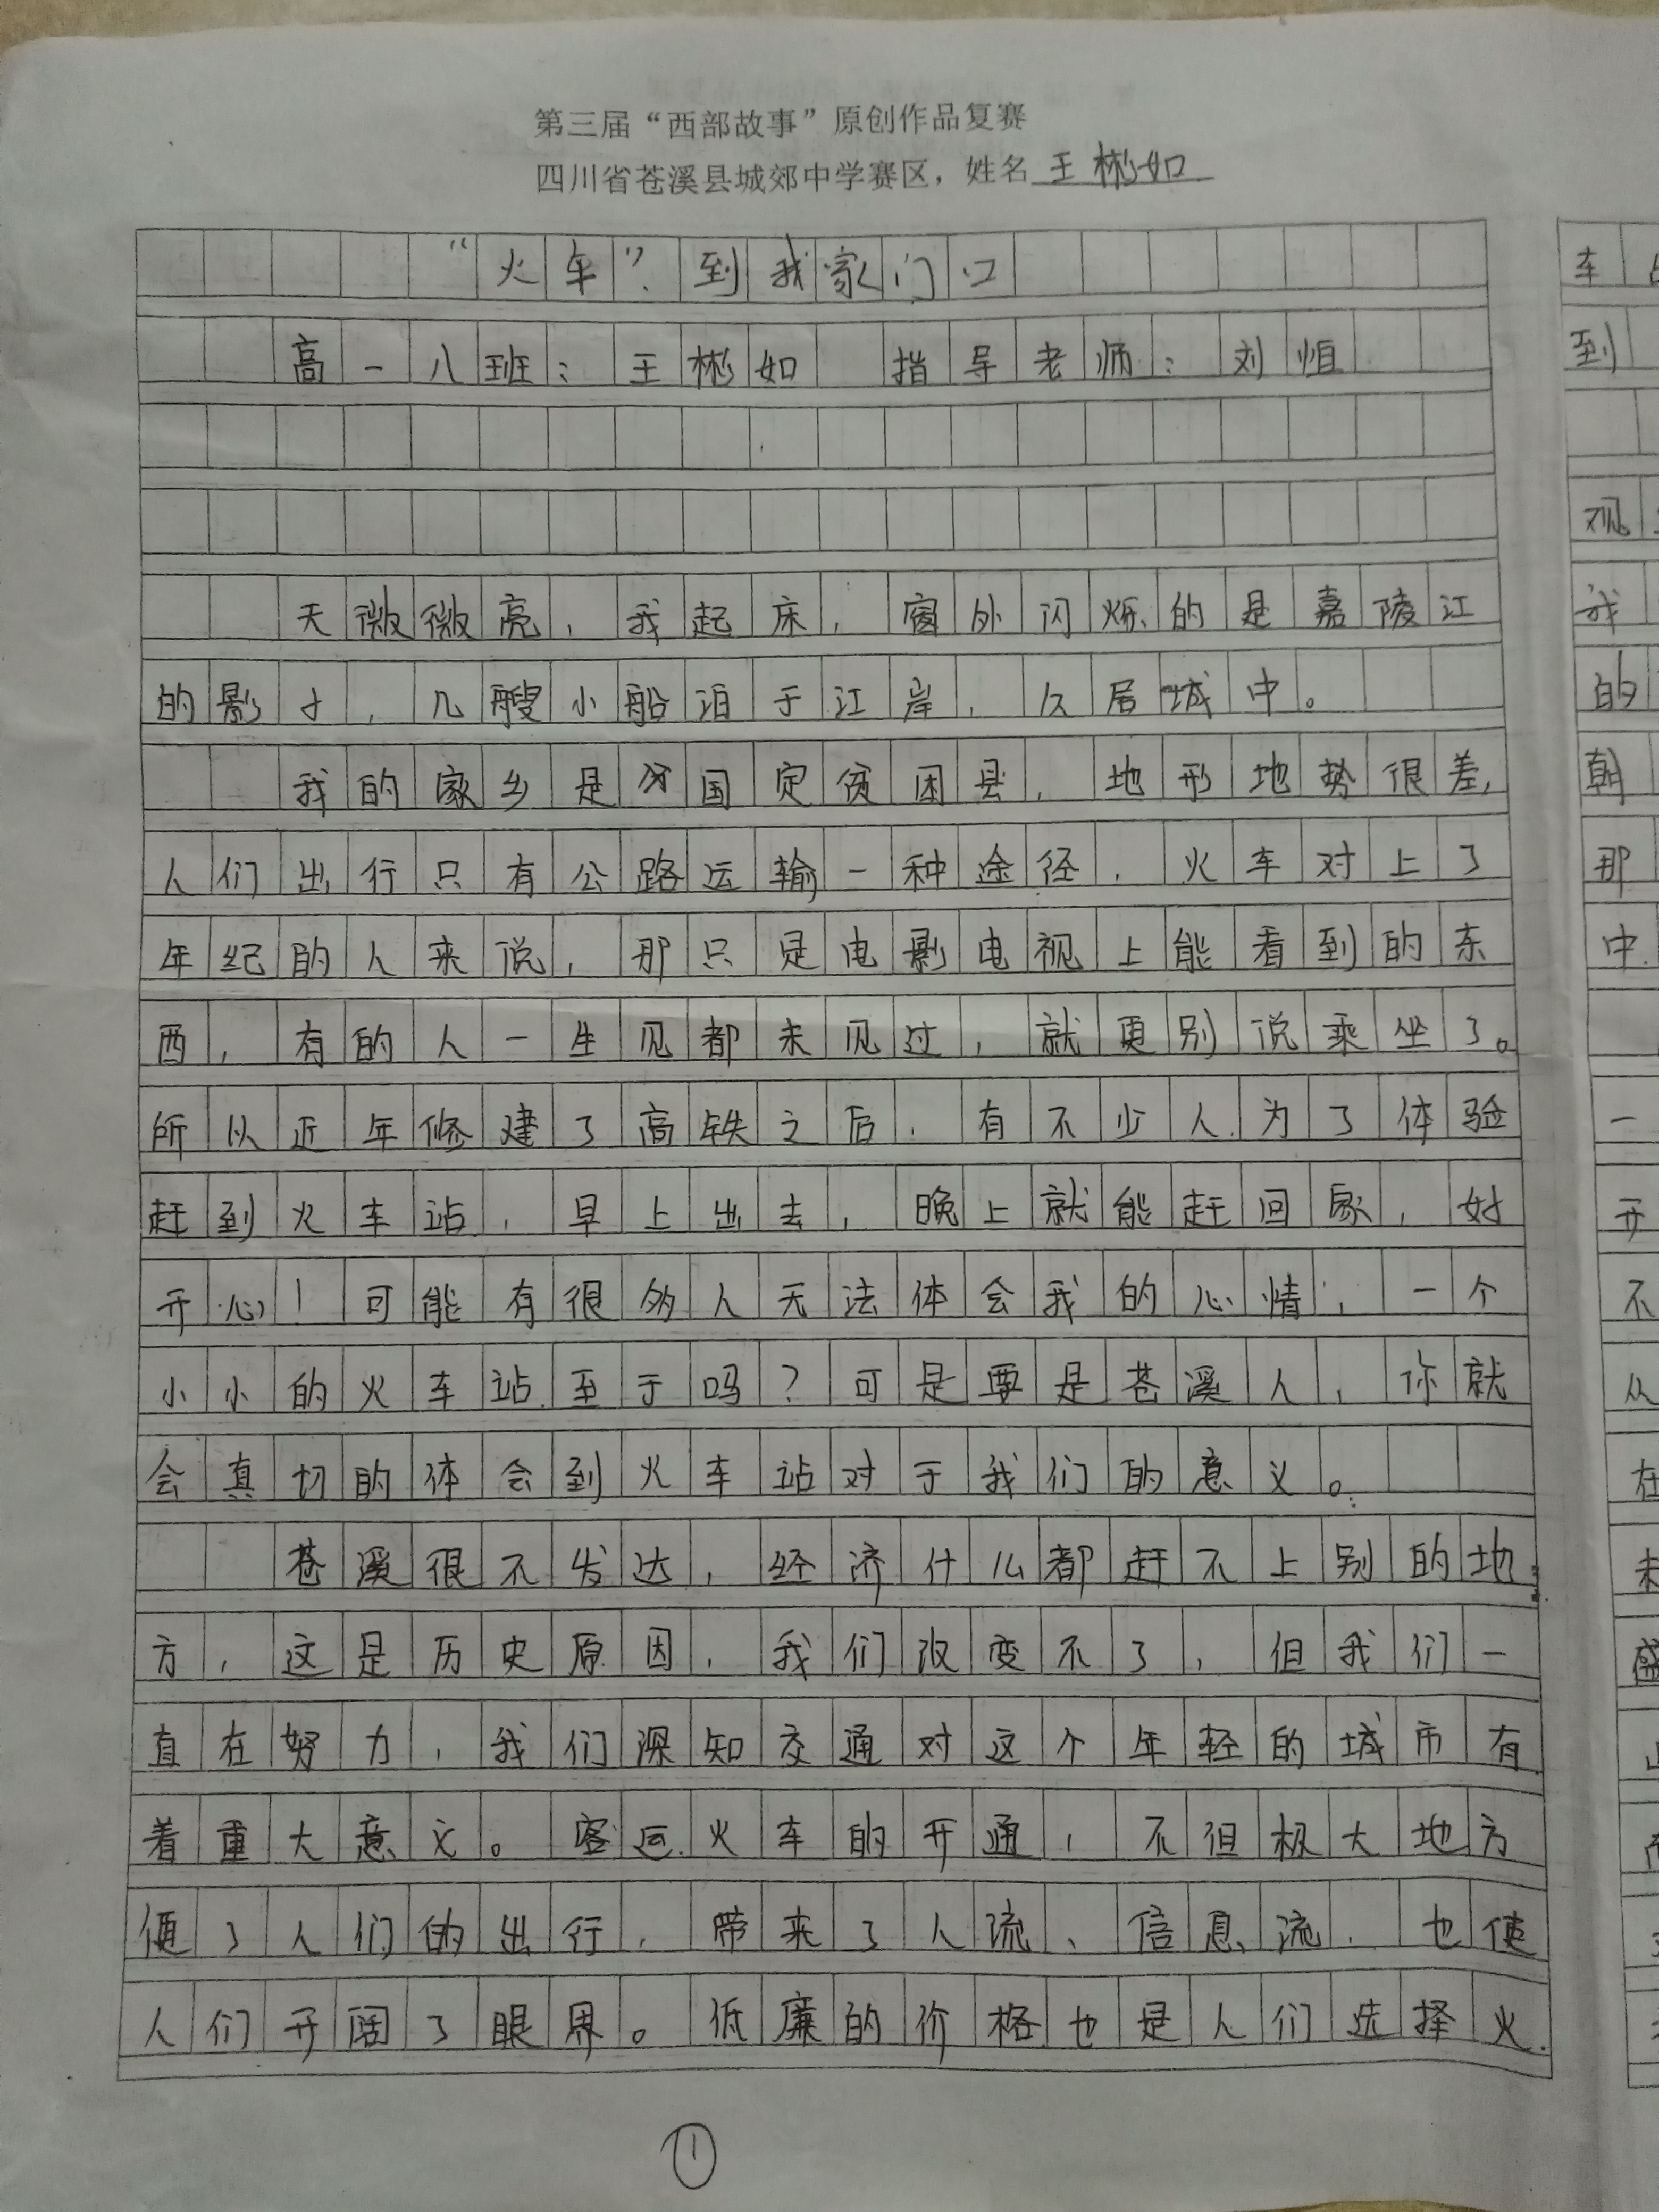 第三届“西部故事”原创作品复赛
四川省苍溪县城郊中学赛区，姓名王彬如
“火车”到我家门口
高一八班：王彬如 指导老师：刘恒
天微微亮，我起床，窗外闪烁的是嘉陵江
的影子，几艘小船泊于江岸，久居城中。
我的家乡是个国定贫困县，地形地势很差，
人们出行只有公路运输一种途径，火车对上了
年纪的人来说，那只是电影电视上能看到的东
西，有的人一生见都未见过，就更别说乘坐了。
所以近年修建了高铁之后，有不少人为了体验
赶到火车站，早上出去，晚上就能赶回家，好
开心！可能有很多人无法体会我的心情，一个
小小的火车站至于吗？可是要是苍溪人，你就
会真切的体会到火车站对于我们的意义。
苍溪很不发达，经济什么都赶不上别的地
方，这是历史原因，我们改变不了，但我们一
直在努力，我们深知交通对这个年轻的城市有
着重大意义。客运火车的开通，不但极大地方
便了人们的出行，带来了人流、信息流，也使
人们开阔了眼界。低廉的价格也是人们选择火
①
车
到
观
我
的
朝
那
中
一
开
不
从
在